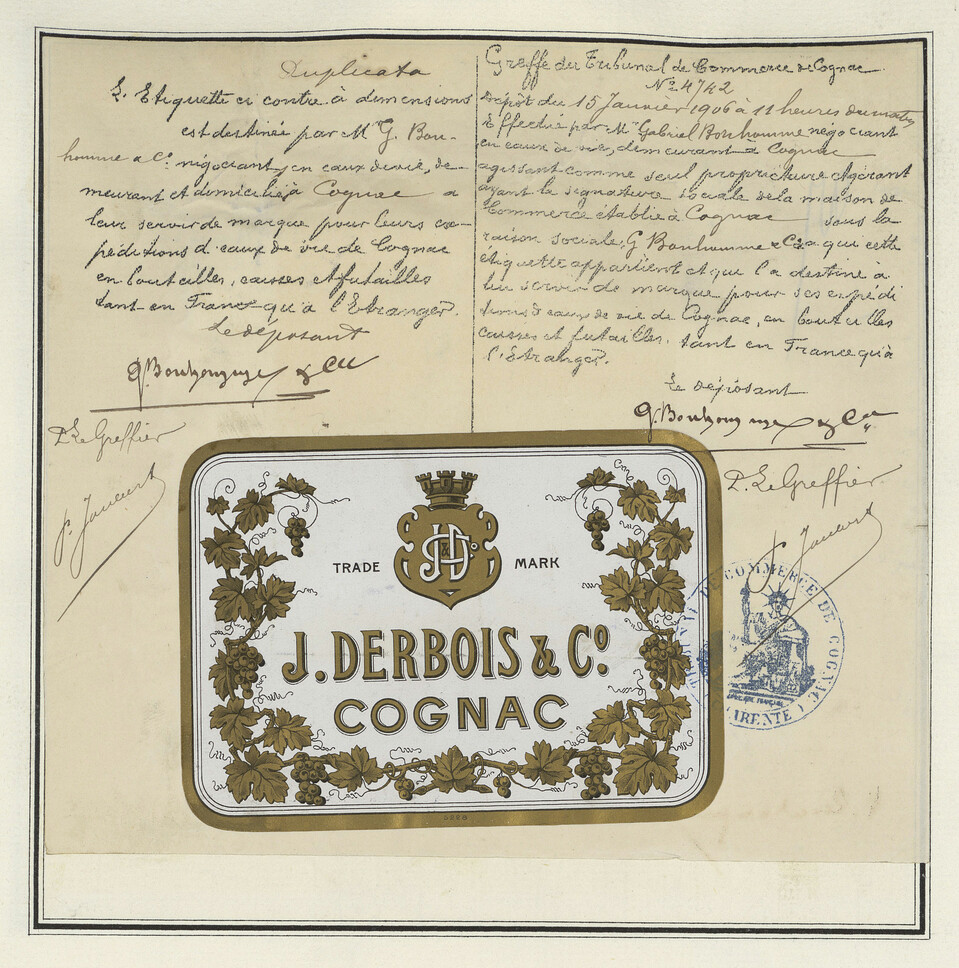 Duplicata
L'Etiquette ci contre à dimensions
est destinée par Mr G. Bon-
homme & Cie négociant, en eaux de vie, de-
meurant et domicilié à Cognac a
leur servir de marque pour leurs ex-
péditions d'eaux de vie de Cognac
en bouteilles, caisses et futailles
tant en France qu'à l'Etranger.
Le déposant
G. Bonhomme & Cie
P. Le Greffier
Greffe du Tribunal de Commerce de Cognac
No 4742
Dépôt du 15 Janvier 1906 à 11 heures du matin
Effectué par Mr Gabriel Bonhomme négociant
en eaux de vie, demeurant à Cognac
agissant comme seul propriétaire et gérant
ayant la signature sociale de la maison de
Commerce établie à Cognac sous la
raison sociale, G Bonhomme & Cie a qui cette
etiquette appartient et qui l'a destiné à
lui servir de marque pour ses expédi
tions d'eaux de vie de Cognac, en bouteilles
caisses et futailles, tant en France qu'à
l'Etranger.
Le déposant
G. Bonhomme & Cie
P. Le Greffier
TRADE MARK
J. DERBOIS & Co.
COGNAC
DE COMMERCE DE COGNAC